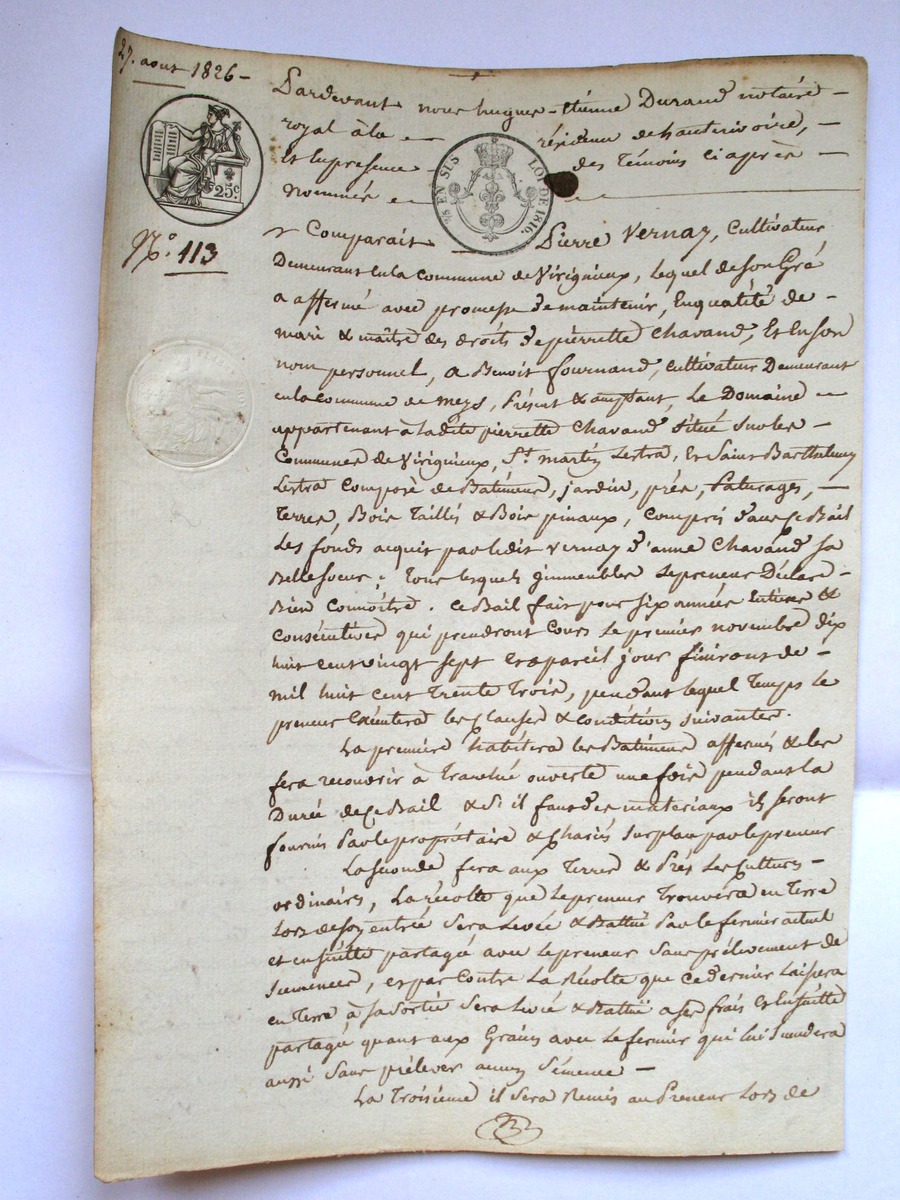 27. aout 1826 -
Pardevant nous hugues-étienne Durand notaire -
royal à la - résidence de hauterivoire, -
et en presence - des Témoins ci après -
Nommés -
25c.
EN SUS LOI DE 1816.
N.° 113
Comparait Pierre Vernay, Cultivateur
Demeurant en la commune de Virigneux, lequel de son Gré
a affermé avec promesse de maintenir, En qualité de -
mari & maître des droits de pierrette Chavand, Et En son
nom personnel, a Benoit fournand, Cultivateur Demeurant
en la commune de meys, Présent & acceptant, Le Domaine -
appartenant à ladite pierrette Chavand Situé sur les -
Communes de Virigneux, St. martin Lestra, Et Saint Barthelemy
Lestra Composé de Batimens, jardin, prés, Paturages, -
Terres, Bois Taillis & Bois pinaux, Compris dans ce Bail
Les fonds acquis par ledit Vernay d'anne Chavand sa
Belle soeur; Tous lesquels immeubles Le preneur Déclare -
Bien Connoître. Ce Bail fait pour six années entieres &
Consécutives qui prendront Cours le premier novembre dix
huit cent vingt sept Et a pareil jour finiront de -
mil huit cent Trente Trois, pendant lequel Temps le
preneur Exécutera les Clauses & Conditions suivantes.
La premiere habitera les Batimens affermés & les
fera recouvrir à Tranché ouverte une fois pendant la
Durée de ce Bail & Si il faut des materiaux ils seront
fournis Par le propriétaire & Chariés Sur place par le preneur
La seconde fera aux Terres & Prés Les Cultures -
ordinaires, La récolte que Le preneur Trouvera en Terre
Lors de son entrée Sera Levée & Battue Par le fermier actuel
et ensuitte partagé avec Le preneur Sans prélevement de
Semences, et par Contre La Récolte que ce dernier Laissera
en Terre à sa Sortie Sera Levée & Battue a ses frais Et Ensuitte
partagé quant aux Grains avec Le fermier qui lui Succedera
aussi Sans prélever aucune Sémence -
La Troisieme il Sera Remis au Preneur Lors de